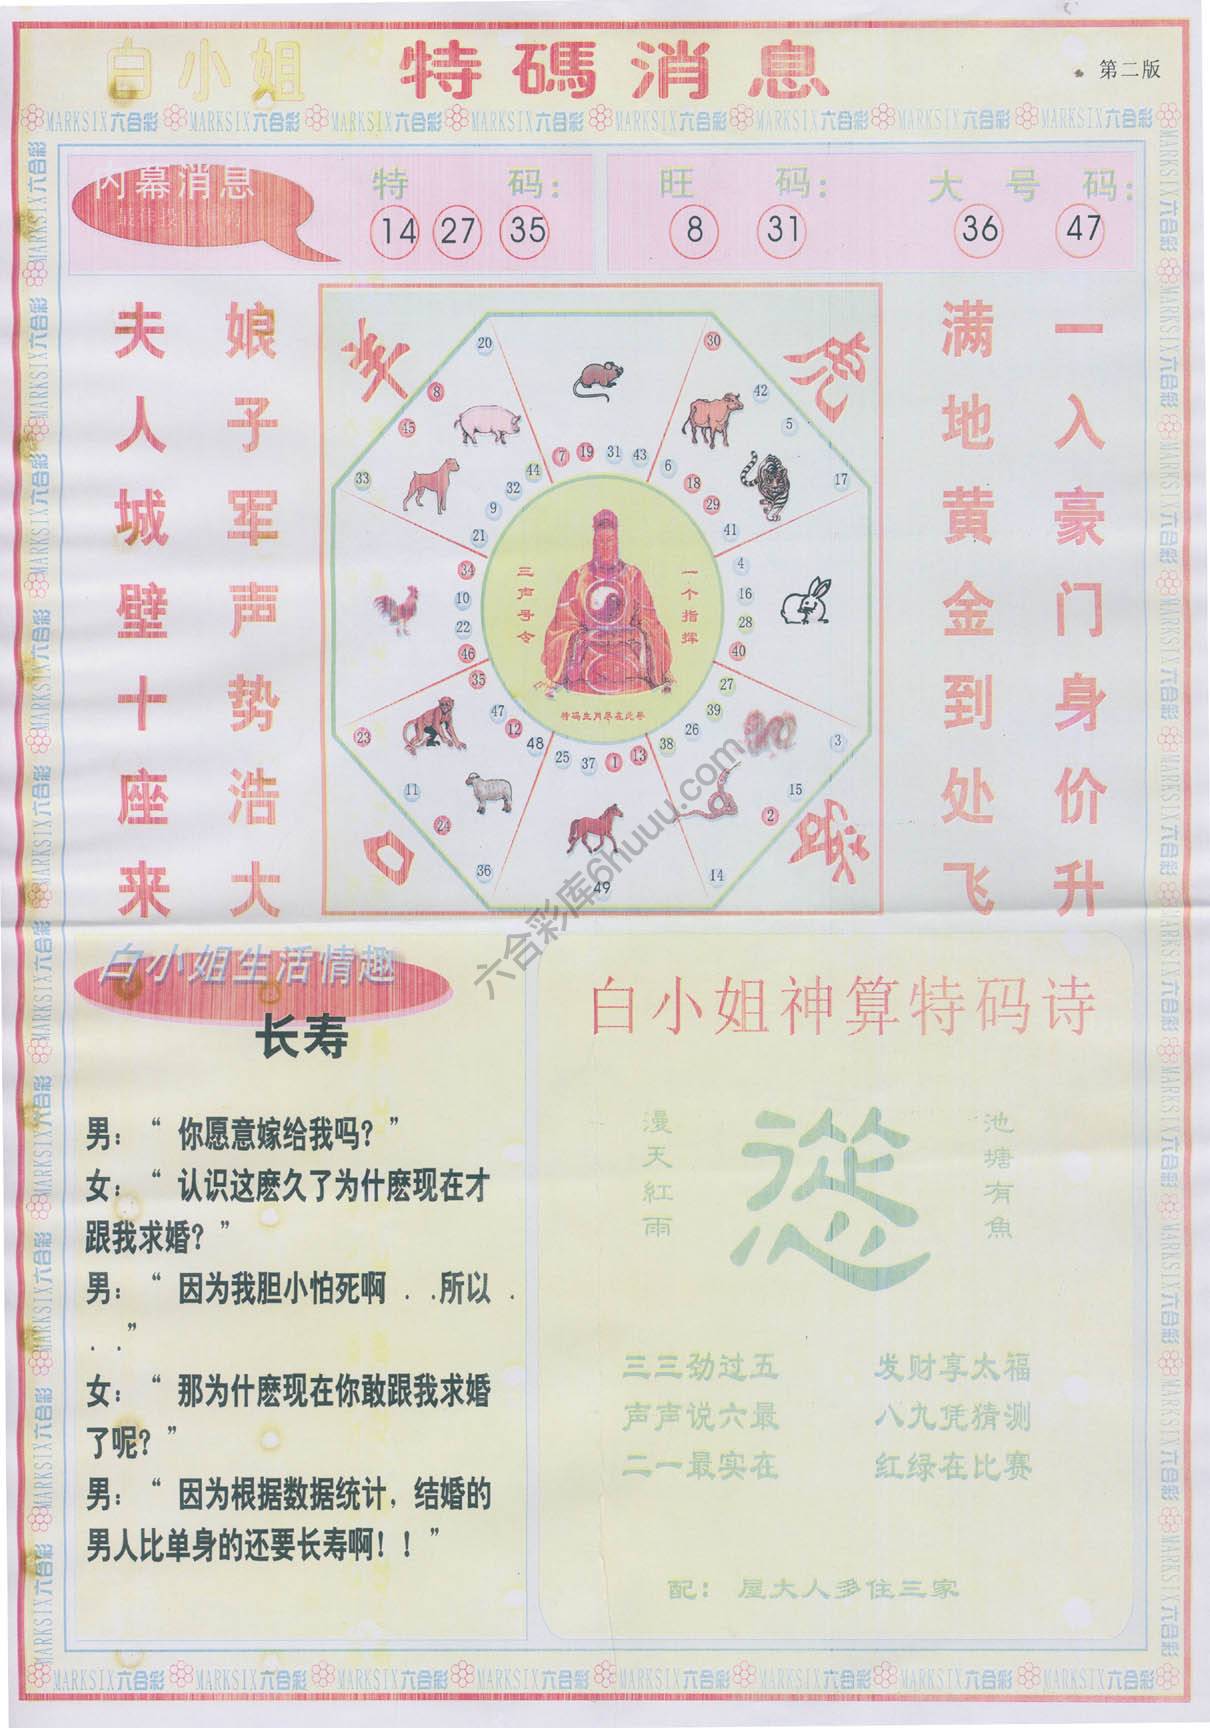 白小姐 特碼消息
第二版
MARKSIX六合彩 MARKSIX六合彩 MARKSIX六合彩 MARKSIX六合彩 MARKSIX六合彩 MARKSIX六合彩 MARKSIX六合彩 MARKSIX六合彩
内幕消息
特 码：
14 27 35
旺 码：
8 31
大 号 码：
36 47
一入豪门身价升
满地黄金到处飞
娘子军声势浩大
夫人城壁十座来
羊
虎
口
20
8
45
33
30
42
5
17
7 19 31 43
6
18
29
41
44
32
9
21
34
10
22
46
4
16
28
40
35
47
12
48
27
39
26
38
25 37 1 13
23
11
24
36
49
3
15
2
14
一个指挥
三声号令
特码生肖尽在此举
六合彩库6huuu.com
白小姐生活情趣
长寿
男：“ 你愿意嫁给我吗？”
女：“ 认识这麽久了为什麽现在才
跟我求婚？”
男：“ 因为我胆小怕死啊 . .所以 .
. .”
女：“ 那为什麽现在你敢跟我求婚
了呢？”
男：“ 因为根据数据统计，结婚的
男人比单身的还要长寿啊！！”
白小姐神算特码诗
池塘有魚
漫天紅雨
三三劲过五 发财享太福
声声说六最 八九凭猜测
二一最实在 红绿在比赛
配： 屋大人多住三家
MARKSIX六合彩 MARKSIX六合彩 MARKSIX六合彩 MARKSIX六合彩 MARKSIX六合彩 MARKSIX六合彩 MARKSIX六合彩 MARKSIX六合彩